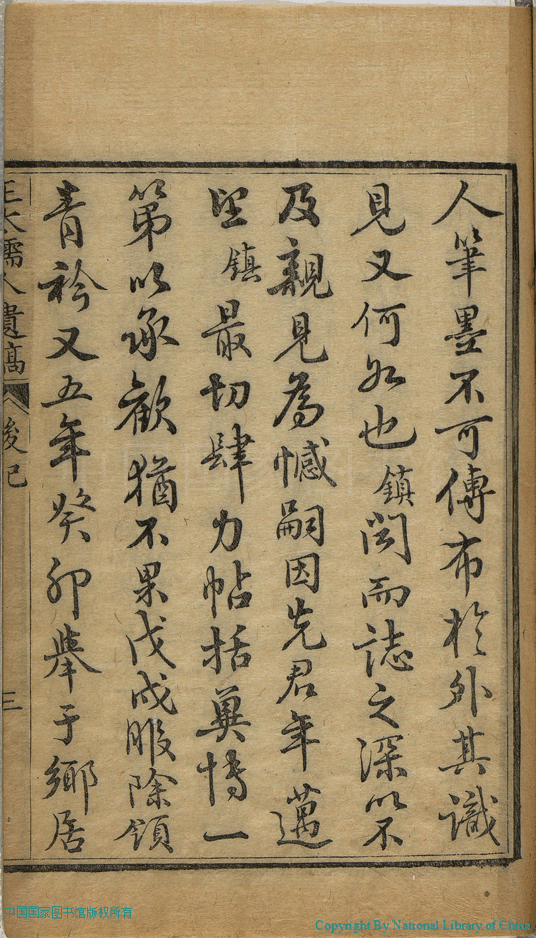 人筆墨不可傳布於外其識
見又何如也鎮聞而誌之深以不
及親見為憾嗣因先君年邁
望鎮最切肆力帖括冀博一
第以承歡猶不果戊戌服除領
青衿又五年癸卯舉于鄉居
王太孺人遺稿
後記
三
中国国家图书馆版权所有
Copyright By National Library of China